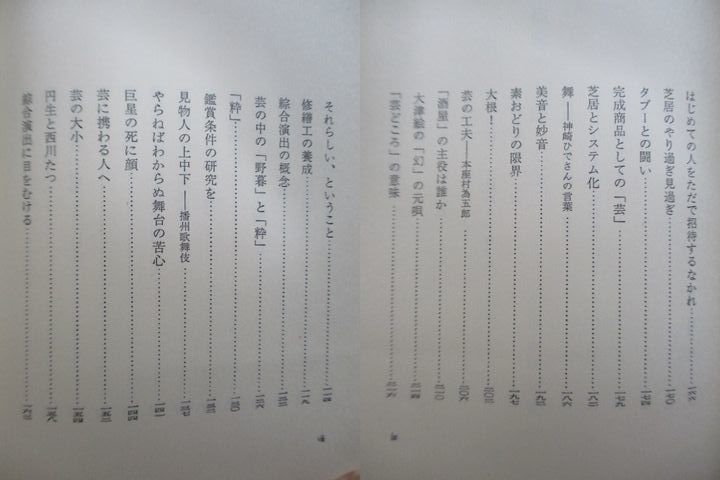 それらしい、ということ……一一四
修繕工の養成……一一九
綜合演出の概念……一二三
芸の中の「野暮」と「粋」……一二六
「粋」……一三〇
鑑賞条件の研究を……一三三
見物人の上中下――播州歌舞伎……一三七
やらねばわからぬ舞台の苦心……一四一
巨星の死に顔……一四四
芸に携わる人へ……
芸の大小……一五四
円生と西川たつ……一五八
綜合演出に目をむける……一六三
はじめての人をただで招待するなかれ……一六六
芝居のやり過ぎ見過ぎ……一七〇
タブーとの闘い……一七四
完成商品としての「芸」……一七九
芝居とシステム化……一八二
舞――神崎ひでさんの言葉……一八六
美音と妙音……一九二
素おどりの限界……一九七
大根！……二〇三
芸の工夫――本座村為五郎……二〇六
「酒屋」の主役は誰か……二一〇
大津絵の「幻」の元唄……二一四
「芸どころ」の意味……二一六